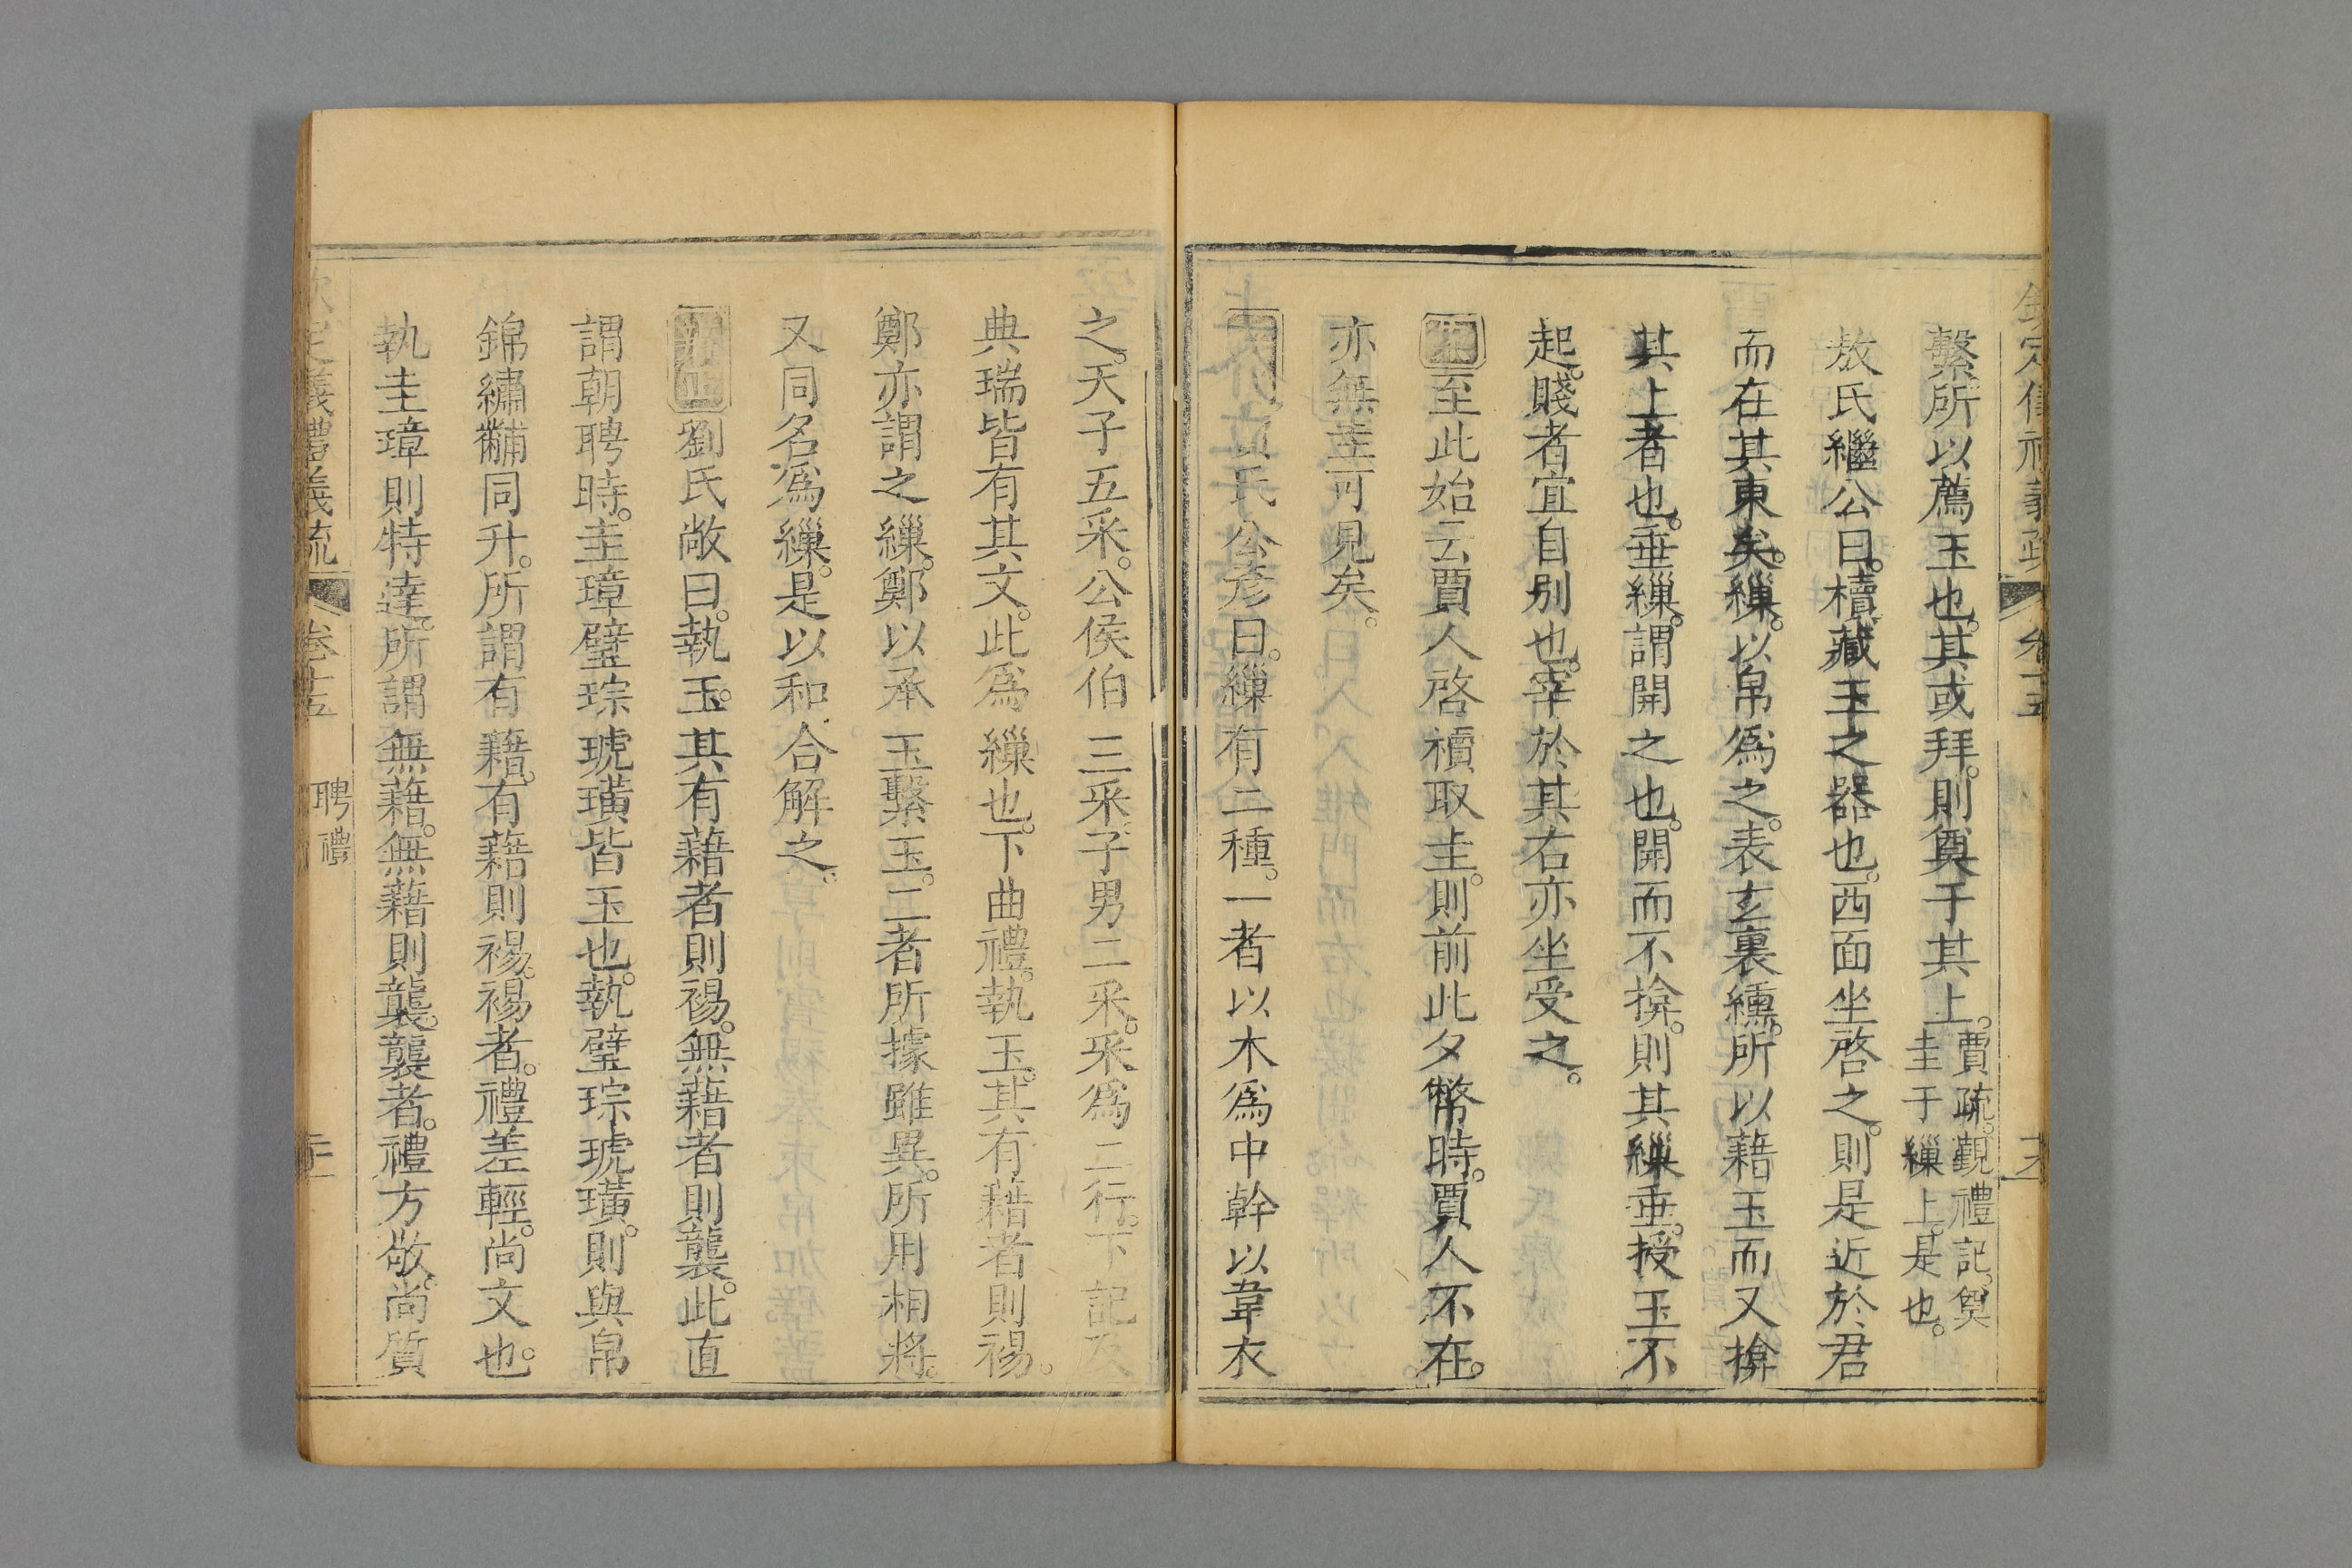 繫所以薦玉也。其或拜。則奠于其上。賈疏。覲禮記。奠圭于繅上。是也。
敖氏繼公曰。櫝藏玉之器也。西面坐啓之。則是近於君
而在其東矣。繅。以帛爲之。表玄裏纁。所以藉玉而又揜
其上者也。垂繅。謂開之也。開而不揜。則其繅垂。授玉不
起。賤者宜自別也。宰於其右亦坐受之。
至此始云賈人啓櫝取圭。則前此夕幣時。賈人不在。
亦無圭可見矣。
賈氏公彥曰。繅有二種。一者以木爲中幹以韋衣
之。天子五采。公侯伯三采。子男二采。采爲二行。下記及
典瑞皆有其文。此爲繅也。下曲禮。執玉。其有藉者則裼。
鄭亦謂之繅。鄭以承玉繫玉。二者所據雖異。所用相將。
又同名爲繅。是以和合解之。
劉氏敞曰。執玉。其有藉者則裼。無藉者則襲。此直
謂朝聘時。圭璋璧琮琥璜皆玉也。執璧琮琥璜。則與帛
錦繡黼同升。所謂有藉。有藉則裼。裼者。禮差輕。尚文也。
執圭璋則特達。所謂無藉。無藉則襲。襲者。禮方敬。尚質
欽定儀禮義疏 卷十五 聘禮